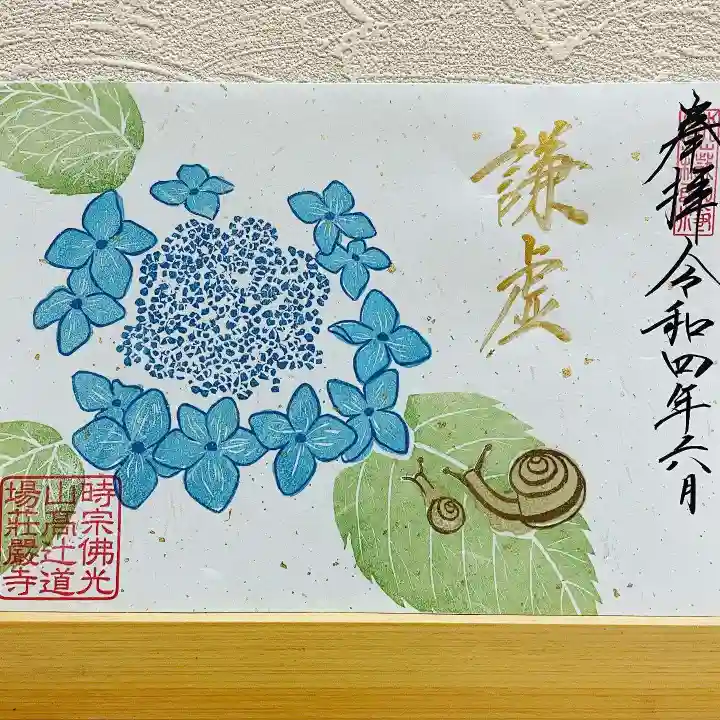 奉拝 令和四年六月
謙虚
時宗佛光
山高辻道
場荘嚴寺